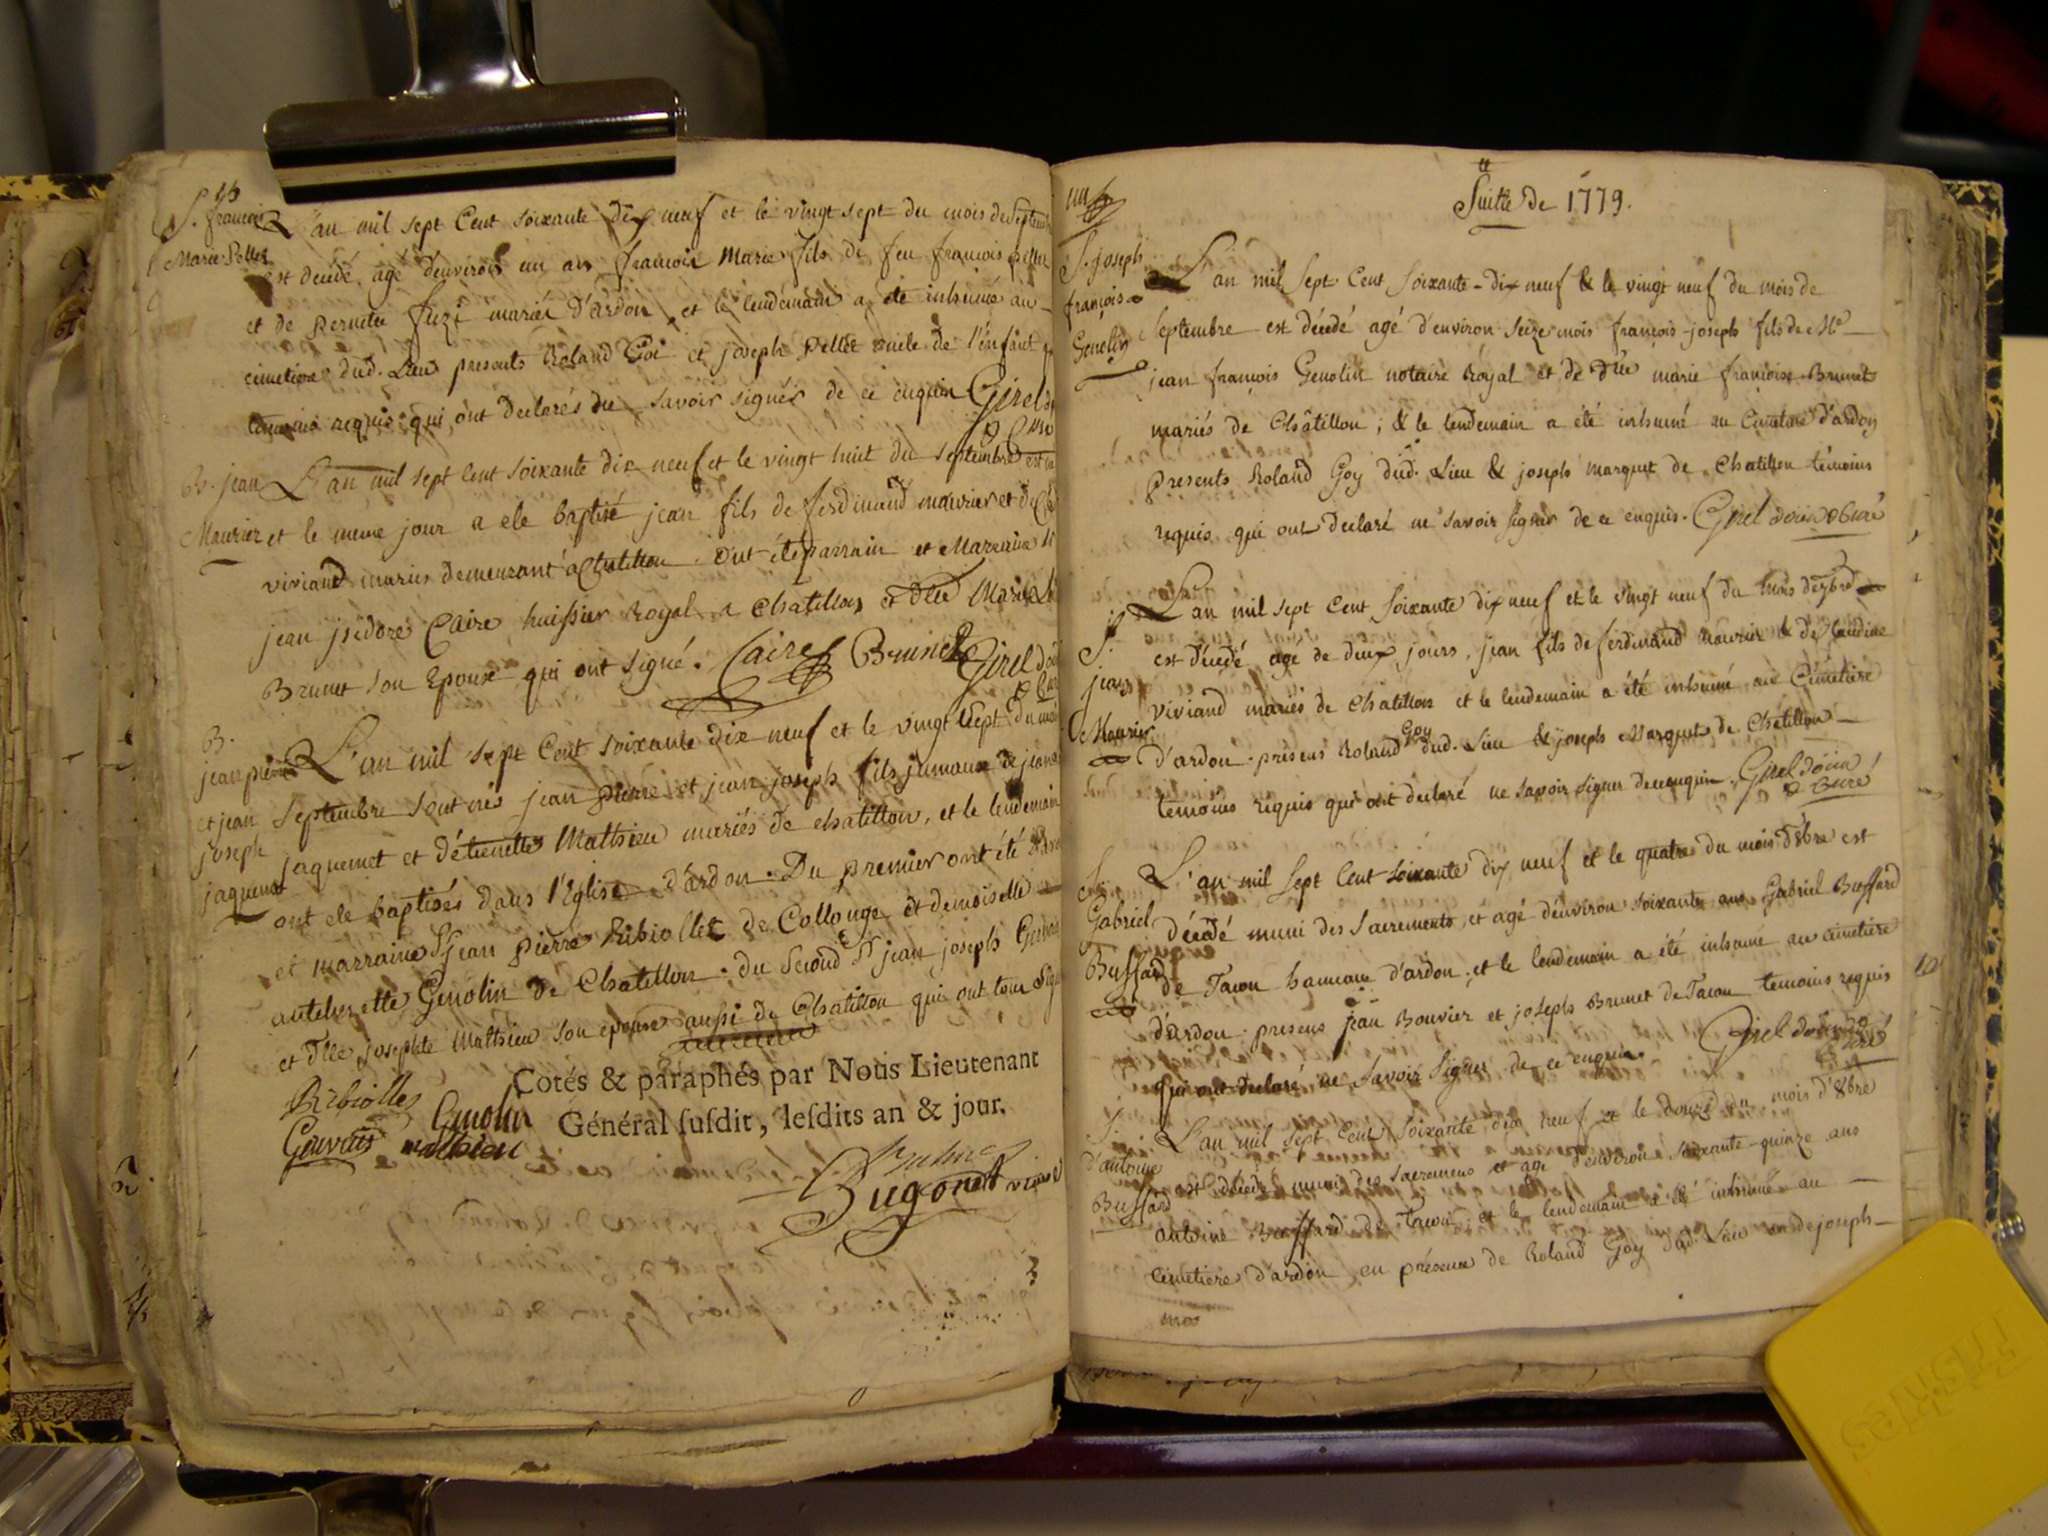 S. françois
Marie Pellet
L'an mil sept Cent soixante dix neuf et le vingt sept du mois de septembre
est décédé agé d'environ un an françois Marie fils de feu françois pellet
et de pernette fuzi mariés D'ardon, et le lendemain a été inhumé au
cimetiere dud. Lieu presents Roland Goi et joseph Pellet oncle de l'enfant
temoins requis qui ont declarés de savoir signer de ce enquis Girel
B. jean
Maurier
L'an mil sept Cent soixante dix neuf et le vingt huit du septembre est né
et le meme jour a ete baptisé jean fils de ferdinand maurier et de
viviand mariés demeurant à Chatillon. Ont été parrain et Marraine
jean jsidore Caire huissier Royal a Chatillon et dlle Marie
Brunet son Epouse qui ont signé. Caire Brunet Girel
B.
jean pierre
et jean
joseph
jaquemet
L'an mil sept Cent soixante dix neuf et le vingt sept du mois
septembre sont nés jean pierre et jean joseph fils jumaux de jean
jaquemet et d'étiennette Mathieu mariés de chatillon, et le lendemain
ont ete baptisés dans l'Eglise d'ardon. Du premier ont été
et marraine Sr jean pierre Ribiollet de Collonge et demoiselle
Genolin de Chatillon. du second Sr jean joseph
et dlle josephte Mathieu son epouse aussi de Chatillon qui ont tous signé
Cotés & paraphés par Nous Lieutenant
Général susdit, lesdits an & jour.
Ribiollet
Genolin
mathieu
Suitte de 1779.
S. joseph
françois
Genolin
L'an mil sept Cent soixante-dix neuf & le vingt neuf du mois de
septembre est décédé agé d'environ seize mois françois-joseph fils de Me
jean françois Genolin notaire Royal et de Dlle marie françoise Brunet
mariés de Châtillon; & le lendemain a été inhumé au Cimetiere d'ardon
presents Roland Goy dud. Lieu & joseph marquet de Chatillon témoins
requis qui ont declaré ne savoir signer de ce enquis. Girel doien & Curé
S.
jean
Maurier
L'an mil sept Cent soixante dix neuf et le vingt neuf du mois de 7bre
est décédé age de deux jours, jean fils de ferdinand Maurier & de Claudine
viviand mariés de Chatillon et le lendemain a été inhumé au Cémétiere
d'ardon. présens Roland Goy dud. Lieu & joseph Marquet de Châtillon
temoins requis qui ont declaré ne savoir signer de ce enquis. Girel doien
& Curé
S.
Gabriel
Buffard
L'an mil sept Cent soixante dix neuf et le quatre du mois d'8bre est
décédé muni des Sacrements, et agé d'environ soixante ans Gabriel Buffard
de Tacon hameau d'ardon, et le lendemain a été inhumé au cimetiere
d'ardon. presens jean Bouvier et joseph Brunet de Tacon temoins requis
qui ont declaré ne Savoir Signer de ce enquis. Girel doien & Curé
S.
d'antoine
Buffard
L'an mil sept Cent soixante dix neuf et le douze du mois d'8bre
est décédé muni des sacremens et age d'environ soixante-quinze ans
antoine Buffard de Tacon et le lendemain a été inhumé au
cimetiere d'ardon, en présence de Roland Goy dud. Lieu et de joseph